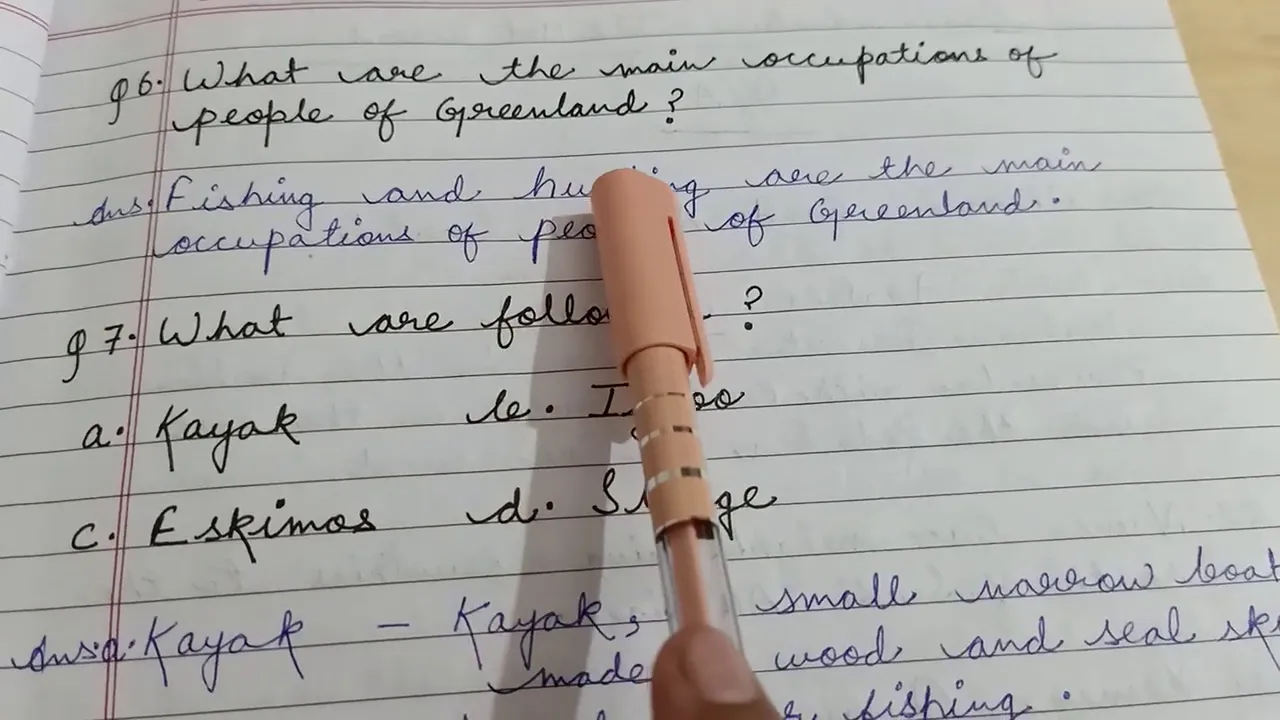 Q6. What are the main occupations of
people of Greenland?
Ans. Fishing and are the main
occupations of of Greenland.
Q7. What are ?
a. Kayak b.
c. Eskimos d.
Ans.a. Kayak – Kayak, small narrow boat
made wood and seal
fishing.